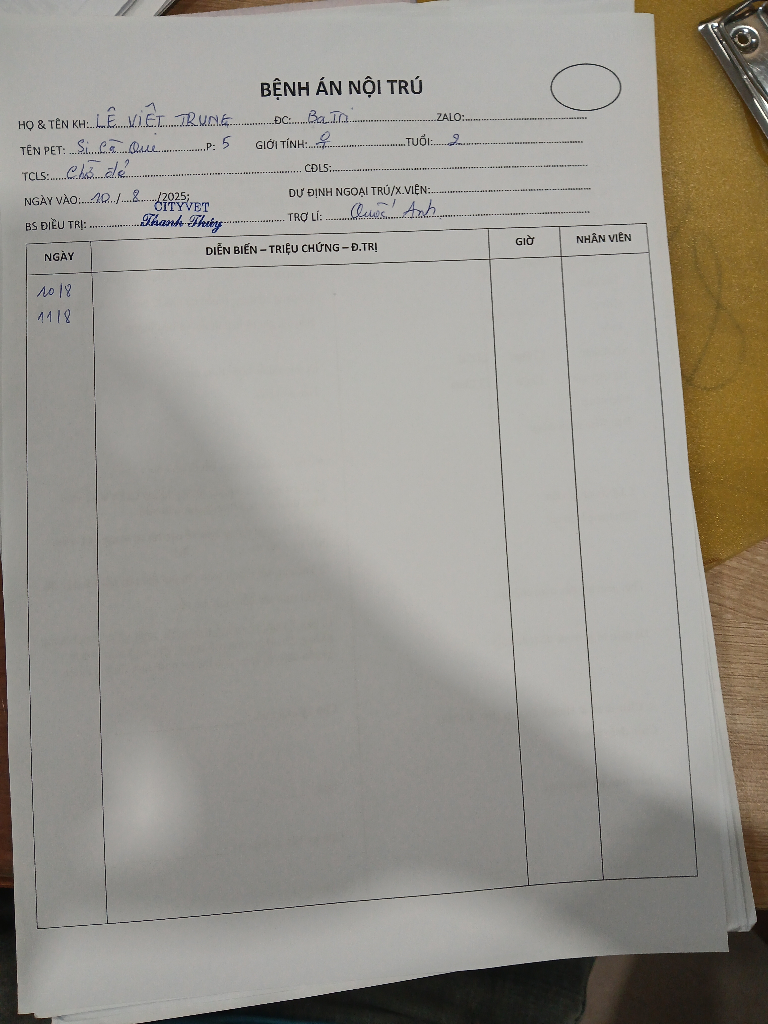 BỆNH ÁN NỘI TRÚ
HỌ & TÊN KH: LÊ VIỆT TRUNG ĐC: Ba Tri ZALO:
TÊN PET: Si Cà Que P: 5 GIỚI TÍNH: ♀ TUỔI: 2
TCLS: Chờ đẻ CĐLS:
NGÀY VÀO: 10 / 8 /2025; DỰ ĐỊNH NGOẠI TRÚ/X.VIỆN:
CITYVET
BS ĐIỀU TRỊ: Thanh Thúy TRỢ LÍ: Quốc Anh
NGÀY DIỄN BIẾN – TRIỆU CHỨNG – Đ.TRỊ GIỜ NHÂN VIÊN
10/8
11/8